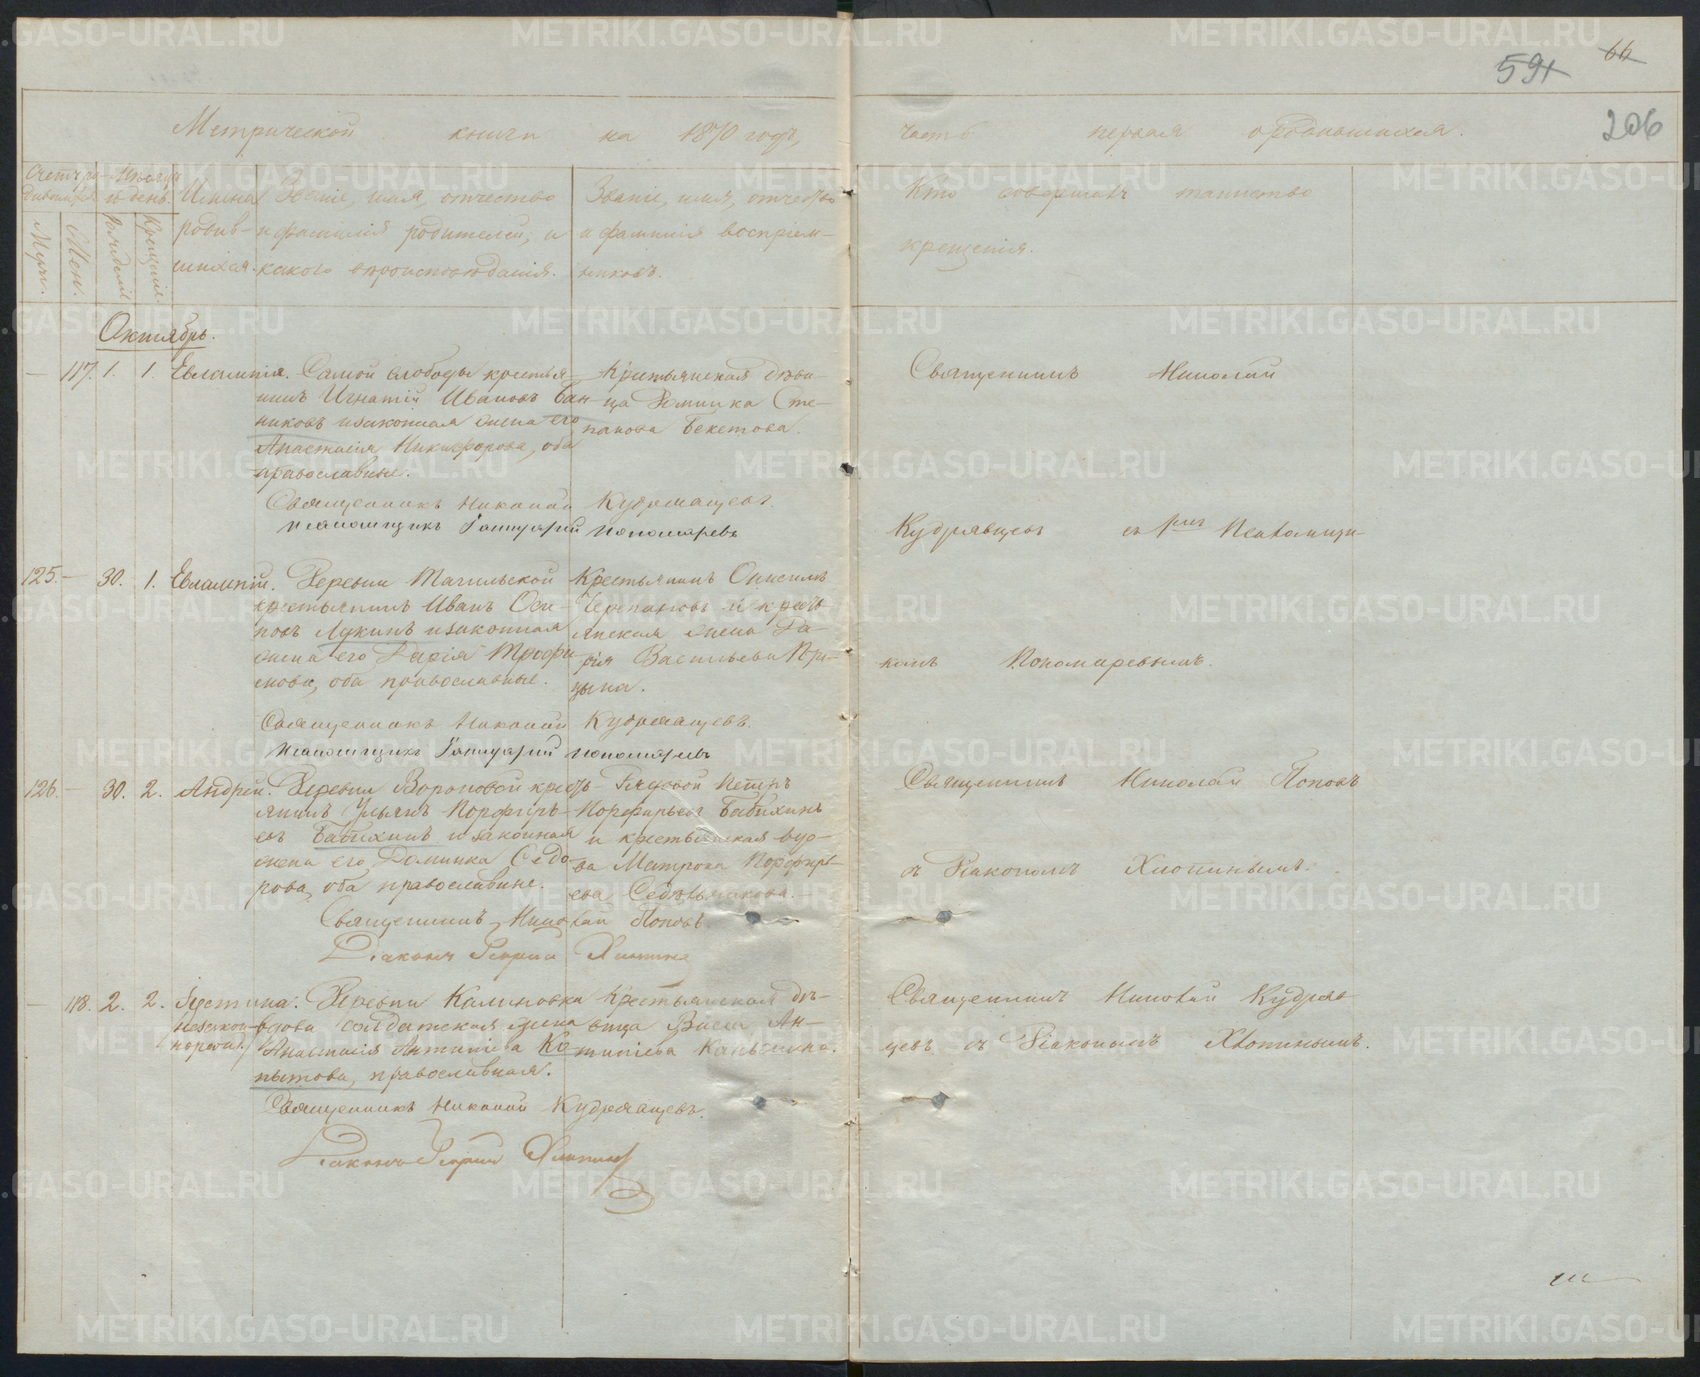 59
66
206
Метрической книги на 1870 годъ,
часть первая о родившихся.
Счетъ ро-
дившихся
Мѣсяцъ
и день.
Муж.
Жен.
Рожденія
Крещенія
Имена
родив-
шихся.
Званіе, имя, отчество
и фамилія родителей, и
какого вѣроисповѣданія.
Званіе, имя, отчество
и фамилія воспріем-
никовъ.
Кто совершалъ таинство
крещенія.
Октябрь.
— 117. 1. 1. Евлампія.
Самой слободы крестья-
нинъ Игнатій Ивановъ Бан-
никовъ и законная жена его
Анастасія Никифорова, оба
православные.
Крестьянская дѣви-
ца Домника Сте-
панова Бекетова.
Священникъ Николай
Кудрявцевъ съ Псаломщи-
комъ Пономаревымъ.
Священникъ Николай Кудрявцевъ.
Псаломщикъ Пономаревъ
125. — 30. 1. Евлампій.
Деревни Тагильской
крестьянинъ Иванъ Оси-
повъ Лукинъ и законная
жена его Дарія Трофи-
мова, оба православные.
Крестьянинъ Онисимъ
Черепановъ и кресть-
янская жена Да-
рія Васильева Пру-
цына.
Священникъ Николай Кудрявцевъ.
Псаломщикъ Пономаревъ
126. — 30. 2. Андрей.
Деревни Вороновой кресть-
янинъ Ульянъ Порфирь-
евъ Бабихинъ и законная
жена его Домника Сидо-
рова, оба православные.
Рядовой Петръ
Порфирьевъ Бабихинъ
и крестьянская вдо-
ва Матрона Порфирь-
ева Седельникова.
Священникъ Николай Поповъ
съ Діакономъ Хлопинымъ.
Священникъ Николай Поповъ
Діаконъ Георгій Хлопинъ
— 118. 2. 2. Іустина.
незакон-
норожд.
Деревни Калиновка
вдова солдатская жена
Анастасія Антипіева Ко-
пытова, православная.
Крестьянская дѣ-
вица Васса Ан-
типіева Капылова.
Священникъ Николай Кудряв-
цевъ съ Діакономъ Хлопинымъ.
Священникъ Николай Кудрявцевъ.
Діаконъ Георгій Хлопинъ
METRIKI.GASO-URAL.RU